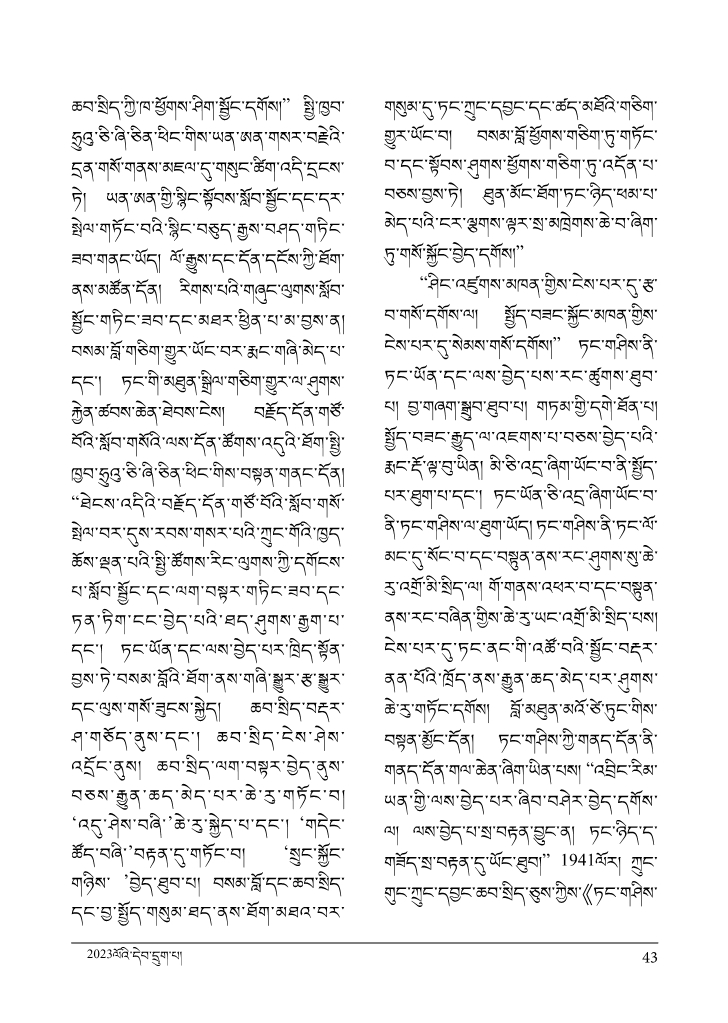 ཆབ་སྲིད་ཀྱི་ཁ་ཕྱོགས་ཤིག་སྦྱོང་དགོས།” སྤྱི་ཁྱབ་
ཧྲུའུ་ཅི་ཞི་ཅིན་ཕིང་གིས་ཡན་ཨན་གསར་བརྗེའི་
དྲན་གསོ་གནས་མཇལ་དུ་གསུང་ཚིག་འདི་དྲངས་
ཏེ། ཡན་ཨན་གྱི་སྙིང་སྟོབས་སློབ་སྦྱོང་དང་དར་
སྤེལ་གཏོང་བའི་སྙིང་བཅུད་རྒྱས་བཤད་གཏིང་
ཟབ་གནང་ཡོད། ལོ་རྒྱུས་དང་དོན་དངོས་ཀྱི་ཐོག་
ནས་མཚོན་དོན། རིགས་པའི་གཞུང་ལུགས་སློབ་
སྦྱོང་གཏིང་ཟབ་དང་མཐར་ཕྱིན་པ་མ་བྱས་ན།
བསམ་བློ་གཅིག་གྱུར་ཡོང་བར་རྨང་གཞི་མེད་པ་
དང་། ཏང་གི་མཐུན་སྒྲིལ་གཅིག་གྱུར་ལ་ཤུགས་
རྐྱེན་ཚབས་ཆེན་ཐེབས་ངེས། བརྗོད་དོན་གཙོ་
བོའི་སློབ་གསོའི་ལས་དོན་ཚོགས་འདུའི་ཐོག་སྤྱི་
ཁྱབ་ཧྲུའུ་ཅི་ཞི་ཅིན་ཕིང་གིས་བསྟན་གནང་དོན།
“ཐེངས་འདིའི་བརྗོད་དོན་གཙོ་བོའི་སློབ་གསོ་
སྤེལ་བར་དུས་རབས་གསར་པའི་ཀྲུང་གོའི་ཁྱད་
ཆོས་ལྡན་པའི་སྤྱི་ཚོགས་རིང་ལུགས་ཀྱི་དགོངས་
པ་སློབ་སྦྱོང་དང་ལག་བསྟར་གཏིང་ཟབ་དང་
ཏན་ཏིག་ངང་བྱེད་པའི་ཐད་ཤུགས་རྒྱག་པ་
དང་། ཏང་ཡོན་དང་ལས་བྱེད་པར་ཁྲིད་སྟོན་
བྱས་ཏེ་བསམ་བློའི་ཐོག་ནས་གཞི་སྒྱུར་རྩ་སྒྱུར་
དང་ལུས་གསོ་ཟུངས་སྐྱེད། ཆབ་སྲིད་བརྡར་
ཤ་གཅོད་ནུས་དང་། ཆབ་སྲིད་ངེས་ཤེས་
འདྲོང་ནུས། ཆབ་སྲིད་ལག་བསྟར་བྱེད་ནུས་
བཅས་རྒྱུན་ཆད་མེད་པར་ཆེ་རུ་གཏོང་བ།
‘འདུ་ཤེས་བཞི་’ཆེ་རུ་སྐྱེད་པ་དང་། ‘གདེང་
ཚོད་བཞི་’བརྟན་དུ་གཏོང་བ། ‘སྲུང་སྐྱོང་
གཉིས་ ’བྱེད་ཐུབ་པ། བསམ་བློ་དང་ཆབ་སྲིད་
དང་བྱ་སྤྱོད་གསུམ་ཐད་ནས་ཐོག་མཐའ་བར་
གསུམ་དུ་ཏང་ཀྲུང་དབྱང་དང་ཚད་མཐོའི་གཅིག་
གྱུར་ཡོང་བ། བསམ་བློ་ཕྱོགས་གཅིག་ཏུ་གཏོང་
བ་དང་སྟོབས་ཤུགས་ཕྱོགས་གཅིག་ཏུ་འདོན་པ་
བཅས་བྱས་ཏེ། ཐུན་མོང་ཐོག་ཏང་ཉིད་ཕམ་པ་
མེད་པའི་ངར་ལྕགས་ལྟར་སྲ་མཁྲེགས་ཆེ་བ་ཞིག་
ཏུ་གསོ་སྐྱོང་བྱེད་དགོས།”
“ཤིང་འཛུགས་མཁན་གྱིས་ངེས་པར་དུ་རྩ་
བ་གསོ་དགོས་ལ། སྤྱོད་བཟང་སྐྱོང་མཁན་གྱིས་
ངེས་པར་དུ་སེམས་གསོ་དགོས།” ཏང་གཤིས་ནི་
ཏང་ཡོན་དང་ལས་བྱེད་པས་རང་ཚུགས་ཐུབ་
པ། བྱ་གཞག་སྒྲུབ་ཐུབ་པ། གཏམ་གྱི་དགེ་ཐོན་པ།
སྤྱོད་བཟང་རྒྱུད་ལ་འཇགས་པ་བཅས་བྱེད་པའི་
རྨང་རྡོ་ལྟ་བུ་ཡིན། མི་ཅི་འདྲ་ཞིག་ཡོང་བ་ནི་སྤྱོད་
པར་ཐུག་པ་དང་། ཏང་ཡོན་ཅི་འདྲ་ཞིག་ཡོང་བ་
ནི་ཏང་གཤིས་ལ་ཐུག་ཡོད། ཏང་གཤིས་ནི་ཏང་ལོ་
མང་དུ་སོང་བ་དང་བསྟུན་ནས་རང་ཤུགས་སུ་ཆེ་
རུ་འགྲོ་མི་སྲིད་ལ། གོ་གནས་འཕར་བ་དང་བསྟུན་
ནས་རང་བཞིན་གྱིས་ཆེ་རུ་ཡང་འགྲོ་མི་སྲིད་པས།
ངེས་པར་དུ་ཏང་ནང་གི་འཚོ་བའི་སྦྱོང་བརྡར་
ནན་པོའི་ཁྲོད་ནས་རྒྱུན་ཆད་མེད་པར་ཤུགས་
ཆེ་རུ་གཏོང་དགོས། བློ་མཐུན་མའོ་ཙེ་ཏུང་གིས་
བསྟན་མྱོང་དོན། ཏང་གཤིས་ཀྱི་གནད་དོན་ནི་
གནད་དོན་གལ་ཆེན་ཞིག་ཡིན་པས། “འབྲིང་རིམ་
ཡན་གྱི་ལས་བྱེད་པར་ཞིབ་བཤེར་བྱེད་དགོས་
ལ། ལས་བྱེད་པ་སྲ་བརྟན་བྱུང་ན། ཏང་ཉིད་ད་
གཟོད་སྲ་བརྟན་དུ་ཡོང་ཐུབ།” 1941ལོར། ཀྲུང་
གུང་ཀྲུང་དབྱང་ཆབ་སྲིད་ཅུས་ཀྱིས་《ཏང་གཤིས་
2023ལོའི་དེབ་དྲུག་པ།
43